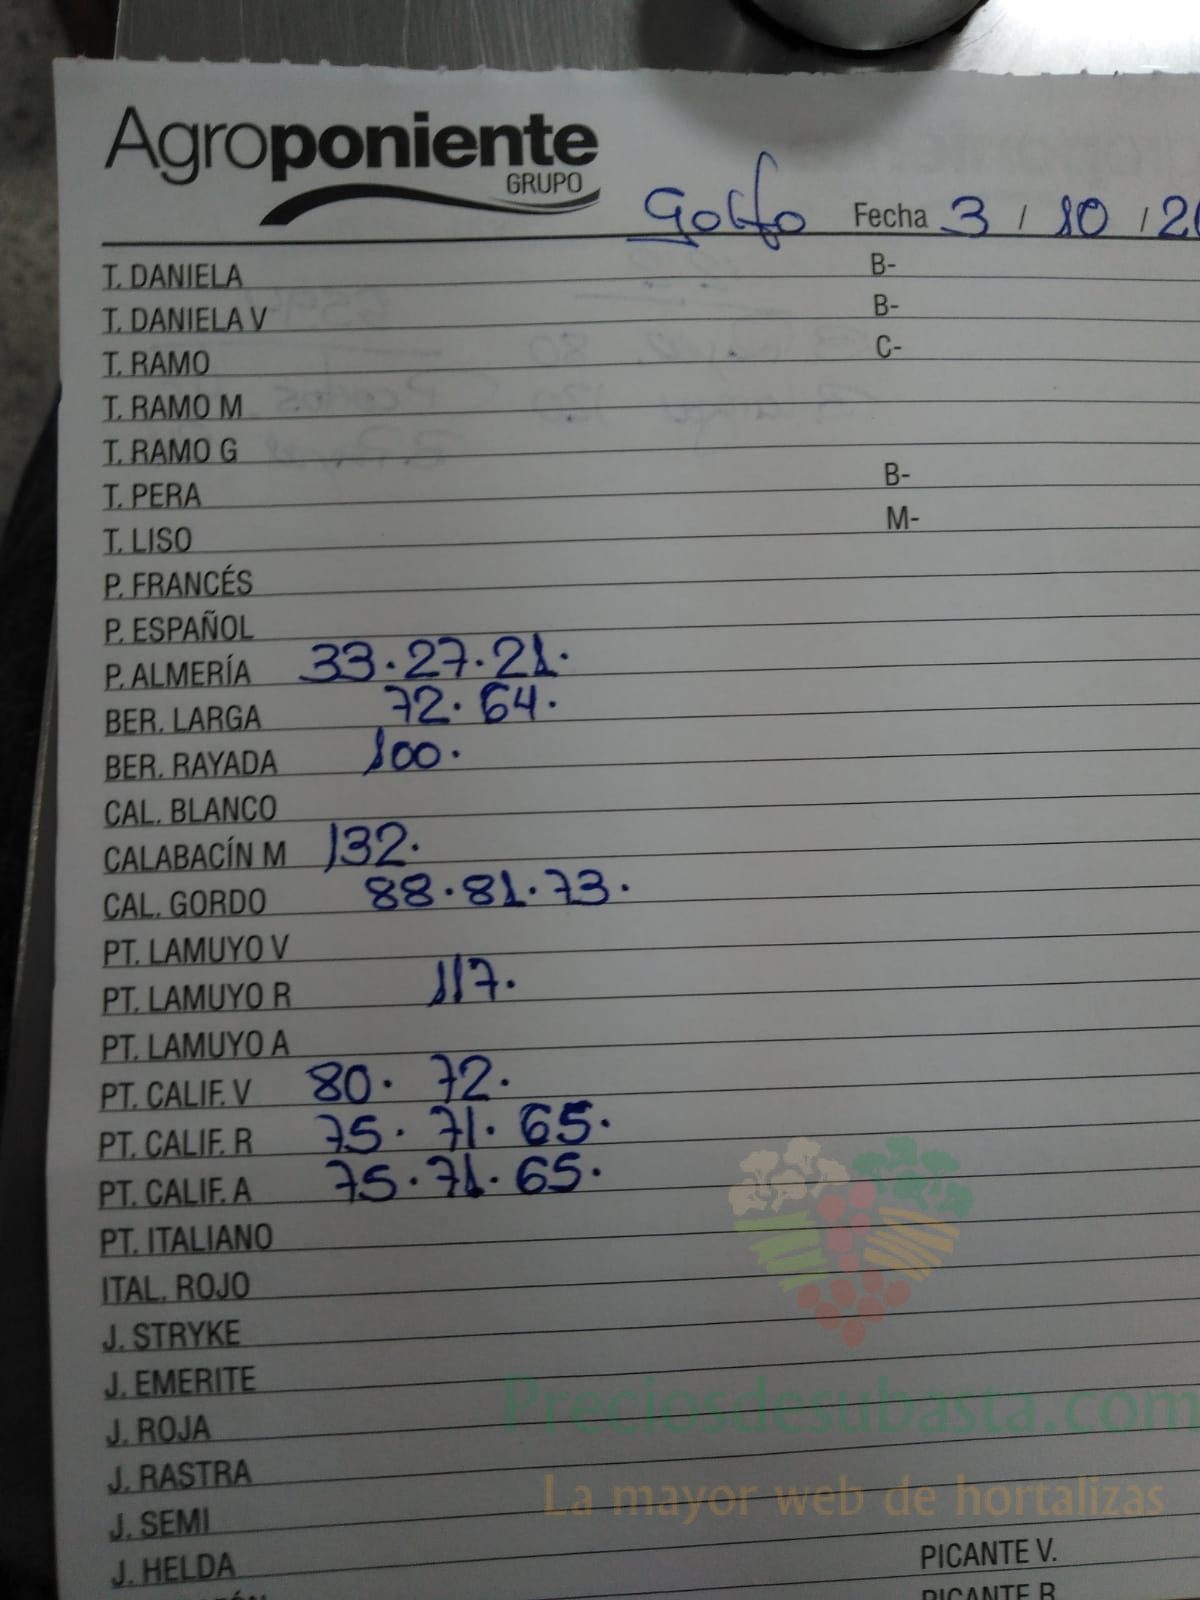 Agroponiente
GRUPO
Golfo Fecha 3 / 10 / 20
T. DANIELA B-
T. DANIELA V B-
T. RAMO C-
T. RAMO M
T. RAMO G
T. PERA B-
T. LISO M-
P. FRANCÉS
P. ESPAÑOL
P. ALMERÍA 33.27.21.
BER. LARGA 72.64.
BER. RAYADA 100.
CAL. BLANCO
CALABACÍN M 132.
CAL. GORDO 88.81.73.
PT. LAMUYO V
PT. LAMUYO R 117.
PT. LAMUYO A
PT. CALIF. V 80. 72.
PT. CALIF. R 75. 71. 65.
PT. CALIF. A 75.71.65.
PT. ITALIANO
ITAL. ROJO
J. STRYKE
J. EMERITE
J. ROJA
J. RASTRA
J. SEMI
J. HELDA PICANTE V.
PICANTE R
Preciosdesubasta.com
La mayor web de hortalizas